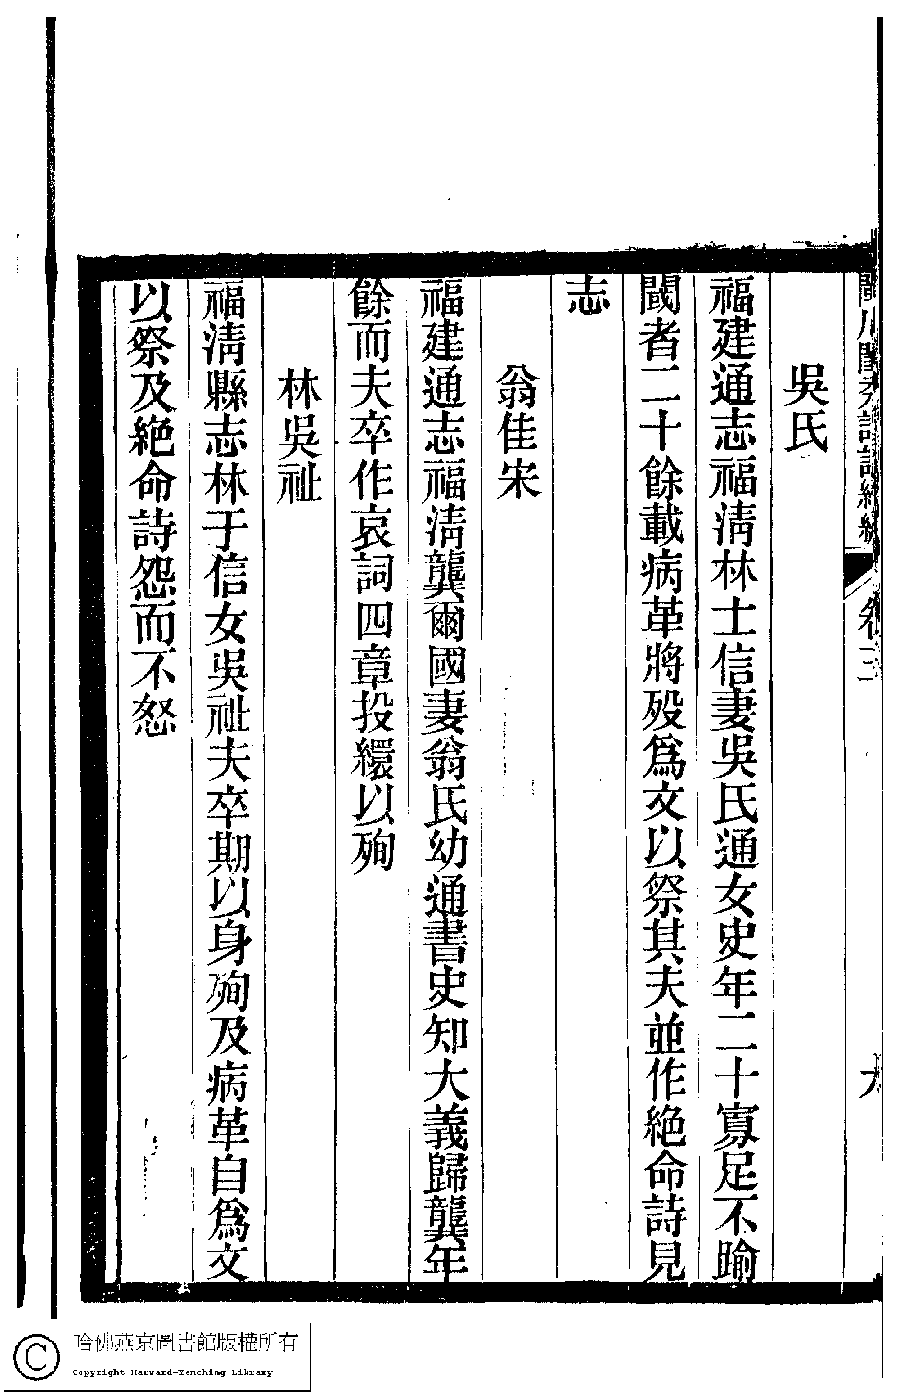 吳氏
福建通志福淸林士信妻吳氏通女史年二十寡足不踰
閾者二十餘載病革將歿爲文以祭其夫並作絶命詩見
志
翁佳宋
福建通志福淸龔爾國妻翁氏幼通書史知大義歸龔年
餘而夫卒作哀詞四章投繯以殉
林吳祉
福淸縣志林于信女吳祉夫卒期以身殉及病革自爲文
以祭及絶命詩怨而不怒
哈佛燕京圖書館版權所有
Copyright Harvard-Yenching Library